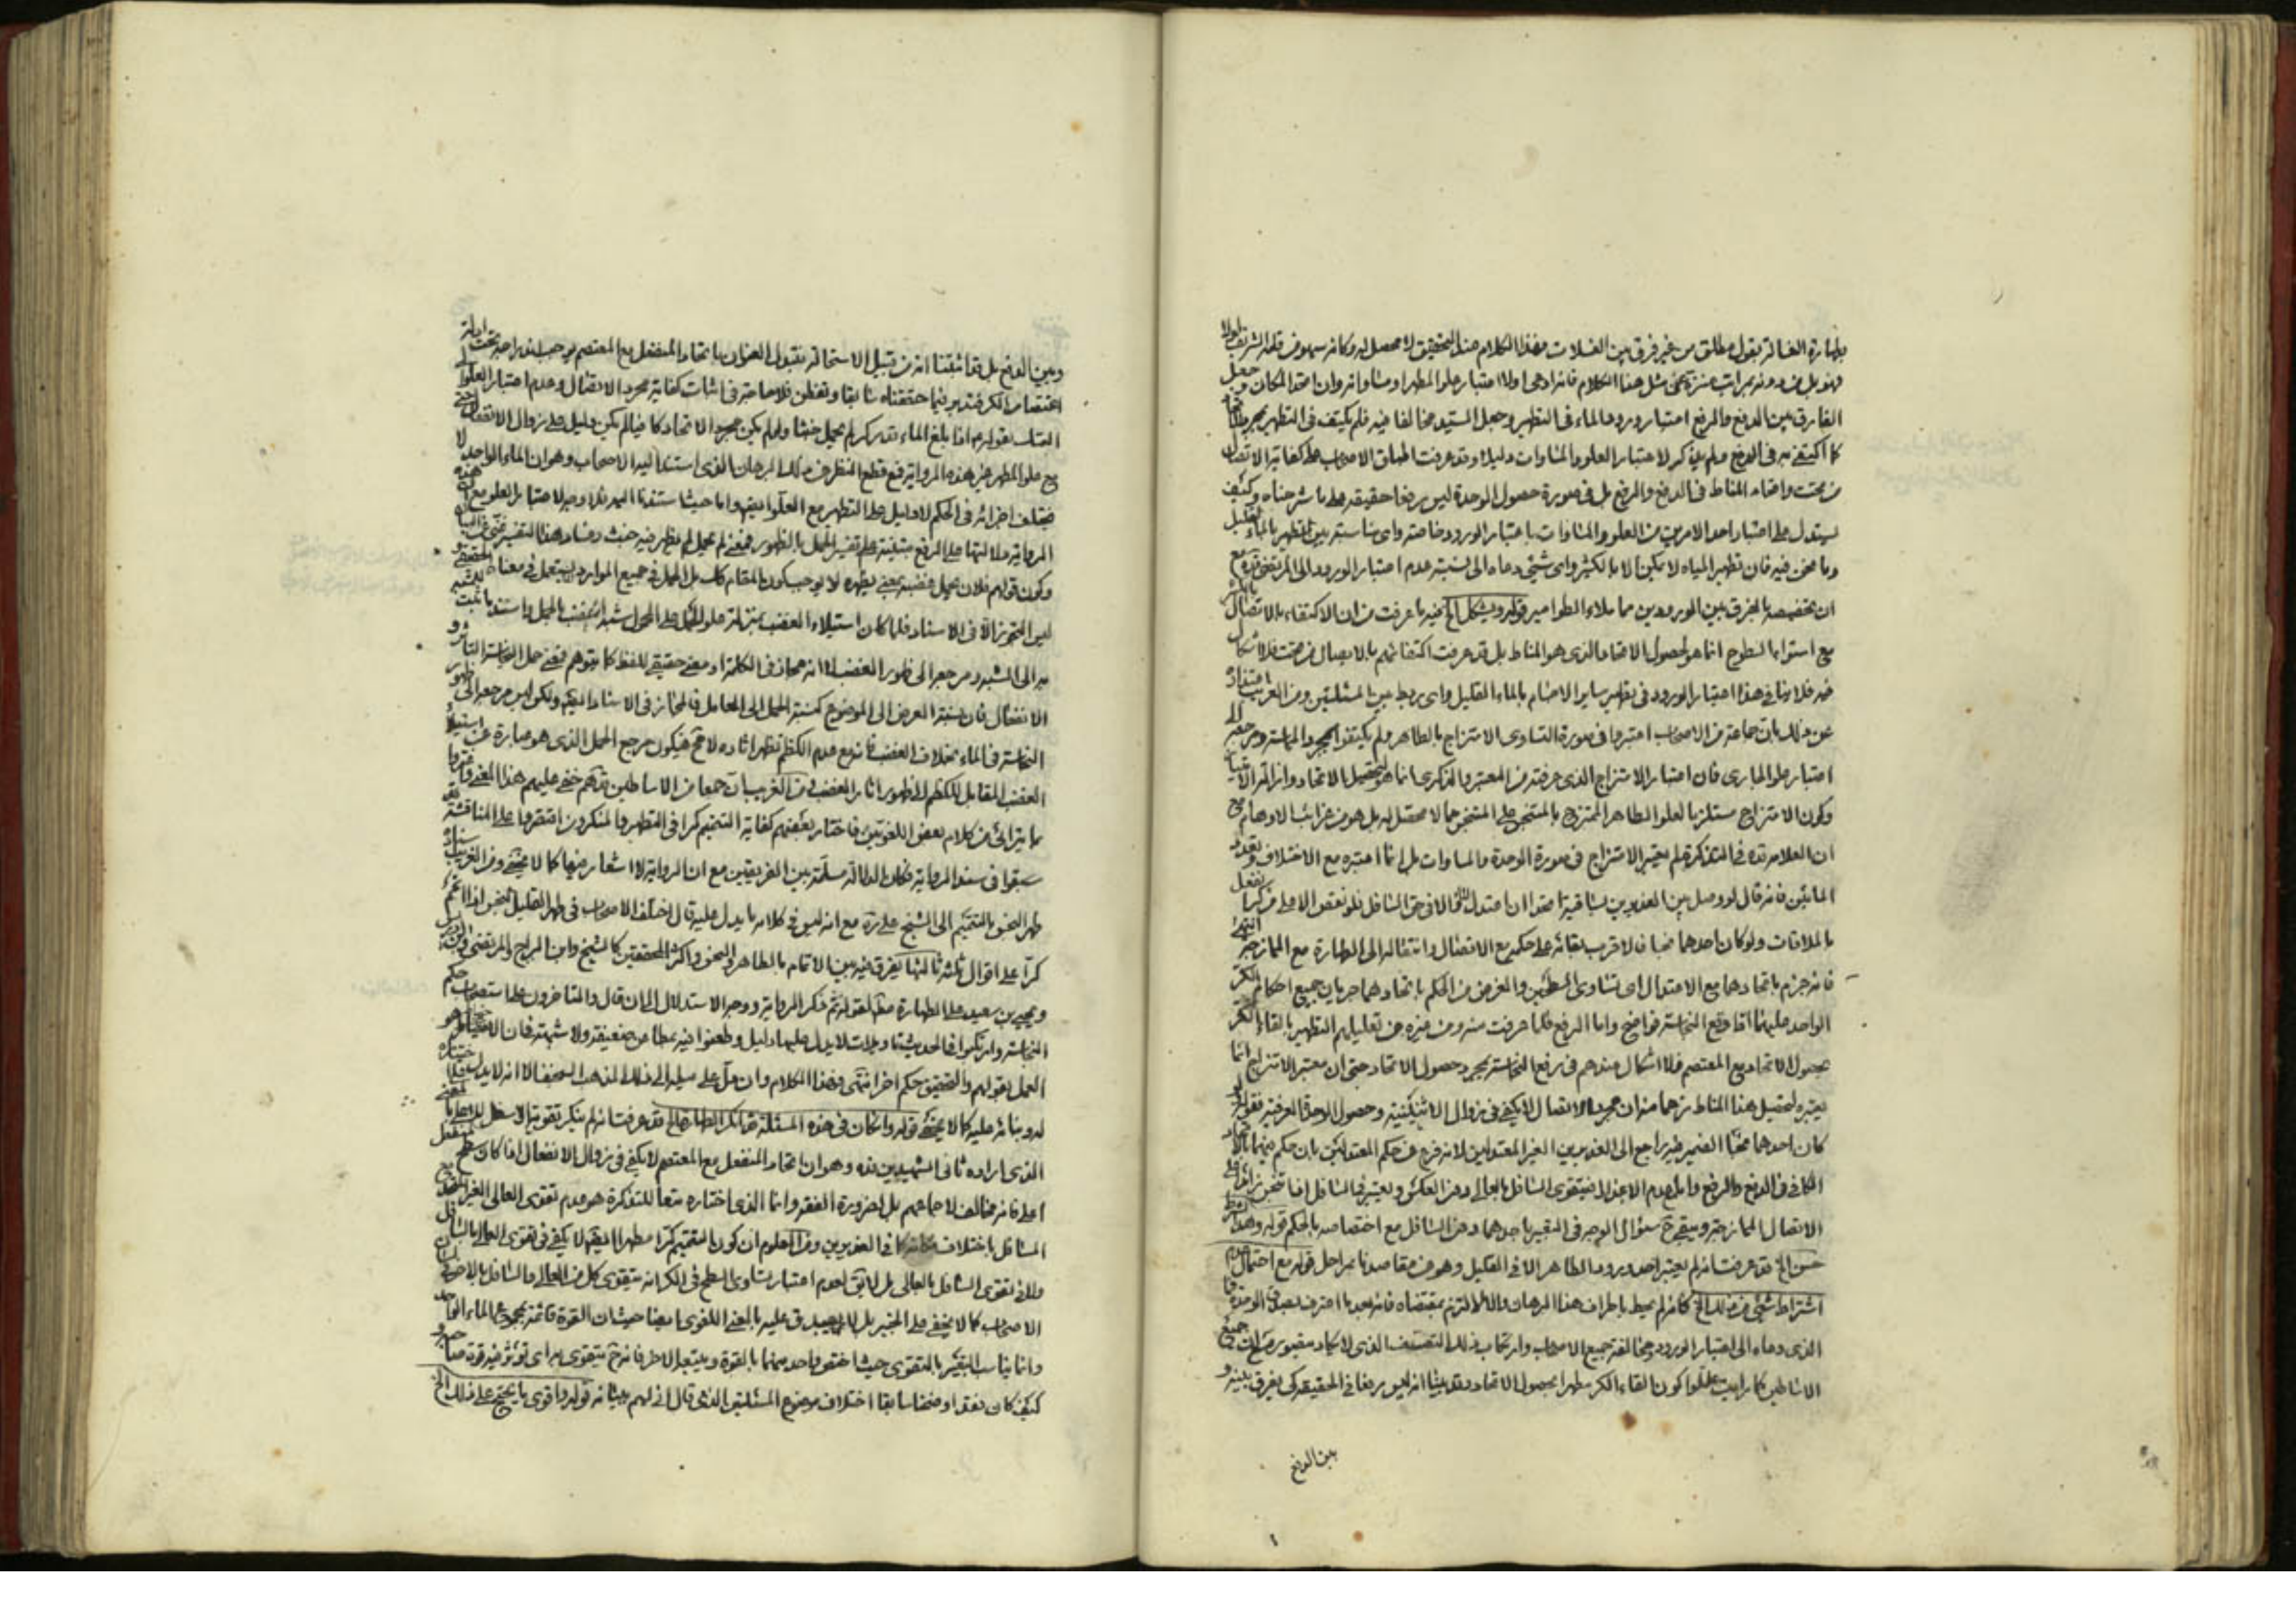 بطهارة الغسالة بقول مطلق من غير فرق بين الغسلات فهذا الكلام عند التحقيق لا محصل له وكانه سهو من قلمه الشريف
فهو بل من دونه بمراتب منزه عن مثل هذا الكلام فانه ادعى اولا اعتبار علو المطهر او مساواته وان اتحد المكان وجعل
الفارق بين الدفع والرفع اعتبار ورود الماء في التطهير وجعل السيد مخالفا فيه فلم يكتف في التطهير بمجرد
كما اكتفى به في الدفع ولم يذكر لاعتبار العلو والمساوات دليلا وقد عرفت اطباق الاصحاب على كفاية الاتصال
من تحت واتحاد المناط في الدفع والرفع بل في صورة حصول الوحدة ليس رفعا حقيقة على ما شرحناه وكيف
يستدل على اعتبار احد الامرين من العلو والمساوات باعتبار الورود خاصة واى مناسبة بين تطهير بالماء القليل
وما نحن فيه فان تطهير المياه لا يكون الا بالكثير واى شيئ دعاه الى نسبة عدم اعتبار الورود الى المرتضى قده مع
ان تخصيصه بالفرق بين الورودين مما ملاء الطوامير قوله ويشكل الخ فيه ما عرفت من ان الاكتفاء بالاتصال
مع استواء السطوح انما هو لحصول الاتحاد الذى هو المناط بل قد عرفت اكتفائهم بالايصال من تحت فلا اشكال
فيه فلا ينافي هذا اعتبار الورود في تطهير ساير الاجسام بالماء القليل واى ربط بين المسئلتين ومن الغريب
عن ذلك بان جماعة من الاصحاب اعتبروا في صورة التساوى الامتزاج بالطاهر ولم يكتفوا بمجرد المماسة ومرجعه الى
اعتبار علو الجارى فان اعتبار الامتزاج الذى عرفته من المعتبر والذكرى انما هو لتحصيل الاتحاد وازالة
وكون الامتزاج مستلزما لعلو الطاهر الممتزج بالمتنجس على المتنجس مما لا محصل له بل هو من غرائب الاوهام مع
ان العلامة قده في التذكرة لم يعتبر الامتزاج في صورة الوحدة والمساوات بل انما اعتبره مع الاختلاف وتعدد
المائين فانه قال لو وصل بين الغديرين بساقية اتحدا ان اعتدل الماء والا في حق السافل فلو نقص الاعلى من كر
بالملاقات ولو كان احدهما نجسا فالاقرب بقائه على حكمه مع الاتصال وانتقاله الى الطهارة مع الممازجة انتهى
فانه جزم باتحادهما مع الاعتدال اى تساوى السطحين والغرض من الحكم باتحادهما جريان جميع احكام الكر
الواحد عليهما اما دفع النجاسة فواضح واما الرفع فلما عرفت منه ومن غيره من تعليلهم التطهير بالقاء الكر
بحصول الاتحاد مع المعتصم فلا اشكال عندهم في رفع النجاسة بمجرد حصول الاتحاد حتى ان معتبر الامتزاج انما
يعتبره لتحصيل هذا المناط زعما منه ان مجرد الاتصال لا يكفي في زوال الاثنينية وحصول الوحدة العرفية فقوله لو
كان احدهما نجسا الضمير فيه راجع الى الغديرين الغير المعتدلين لانه فرغ عن حكم المعتدلين بان حكم فيهما بالاتحاد
الكافي في الدفع والرفع واما مع عدم الاعتدال فيتقوى السافل بالعالى دون العكس ويعتبر في السافل اذا تنجس زائدا على
الاتصال الممازجة ويبقى ح سؤال الوجه في التعبير باحدهما دون السافل مع اختصاصه بالحكم قوله وهذا
حسن الخ قد عرفت انه لم يعتبر احد ورود الطاهر الا في القليل وهو من مقاصدنا بمراحل قوله مع احتمال عدم
اشتراط شيئ من ذلك الخ كانه لم يحط باطراف هذا البرهان والا لالتزم بمقتضاه فانه بعد ما اعترف بصدق الوحدة ما
الذى دعاه الى اعتبار الورود ومخالفة جميع الاصحاب وارتكاب ذلك التعسف الذى لا يكاد مع ان جميع
الاساطين كما رايت عللوا كون القاء الكر مطهرا بحصول الاتحاد وقد بينا انه ليس رفعا في الحقيقة كى يفرق بينه و
بين الدفع
وبين الدفع بل قد اثبتنا انه من قبيل الاستحالة فنقول العنوان باتحاد المنفعل مع المعتصم يوجب اندراجه تحت ادلة
اعتصام الكر فتدبر فيما حققناه سابقا وتفطن فلا حاجة في اثبات كفاية مجرد الاتصال وعدم اعتبار العلو الى
التمسك بقوله اذا بلغ الماء قدر كر لم يحمل خبثا ولو لم يكن مجرد الاتحاد كافيا لم يكن دليل على زوال الانفعال حتى
مع علو المطهر غير هذه الرواية فمع قطع النظر عن ذلك البرهان الذى استند اليه الاصحاب وهو ان الماء الواحد لا
يختلف اجزائه في الحكم لا دليل على التطهير مع العلو ايضا واما حيث استندنا اليه فلا وجه لاعتبار العلو مع ان هذه
الرواية دلالتها على الرفع مبتنية على تفسير الحمل بالظهور فمعنى لم يحمل لم يظهر فيه خبث وفساد هذا التفسير غنى عن البيان
وكون قولهم فلان يحمل غضبه بمعنى يظهره لا يوجب كون المقام كذلك بل الحمل في جميع الموارد يستعمل في معناه الحقيقى و
ليس التجوز الا في الاسناد فلما كان استيلاء الغضب بمنزلة علو الحمل على المحمول شبه الغضب بالحمل واستند ما يثبت للمشبه
به الى المشبه ومرجعه الى ظهور الغضب لا انه مجاز في الكلمة او معنى حقيقى للفظ كما يتوهم فمعنى حمل النجاسة التاثر و
الانفعال فان نسبة العرض الى الموضوع كنسبة الحمل الى الحامل فالمجاز في الاسناد ايضا ولكن ليس مرجعه الى ظهور
النجاسة في الماء بخلاف الغضب فانه مع عدم الكظم تظهر اثاره لا مح فيكون مرجع الحمل الذى هو عبارة عن استيلاء
الغضب المقابل للكظم الى ظهور اثار الغضب ومن الغريب ان جمعا من الاساطين قدهم خفى عليهم هذا المعنى فاغتروا
بما يترائى من كلام بعض اللغويين فاختار بعضهم كفاية التتميم كرا في التطهير والمنكرون اقتصروا على المناقشة
سبقوا في سند الرواية فكان الدلالة مسلمة بين الفريقين مع ان الرواية لا اشعار فيها كما لا يخفى ومن الغريب اسناد
طهر النجس بالتتميم الى الشيخ على ره مع انه ليس في كلامه ما يدل عليه قال اختلف الاصحاب في طهر القليل النجس اذا تمم
كرا على اقوال ثلثة ثالثها يفرق فيه بين الاتمام بالطاهر والنجس واكثر المحققين كالشيخ وابن البراج والمرتضى وابن ادريس
ويحيى بن سعيد على الطهارة مطلقا لقوله ثم ذكر الرواية ووجه الاستدلال الى ان قال والمتاخرون على استصحاب حكم
النجاسة وارتكبوا في الحديث تاويلات لا يدل عليها دليل وطعنوا فيه بمطاعن ضعيفة ولا شبهة فان الاحتياط هو
العمل بقولهم والتحقيق حكم اخر انتهى وهذا الكلام وان دل على ميله الى ذلك المذهب الضعيف الا انه لا يدل على اختياره
له وبنائه عليه كما لا يخفى قوله وان كان في هذه المسئلة قد انكر الطهارة الخ قد عرفت انه لم ينكر تقوية الاسفل بالاعلى بالمعنى
الذى اراده ثانى الشهيدين قده وهو ان اتحاد المنفعل مع المعتصم لا يكفى في زوال الانفعال اذا كان المنفعل
اعلى فانه مخالف لاجماعهم بل لضرورة الفقه وانما الذى اختاره تبعا للتذكرة هو عدم تقوى العالى الغير
السافل باختلاف كما في الغديرين ومن المعلوم ان كون المتمم كرا مطهرا ايضا لا يكفى في تقوى العالى بالسافل
وللاخر تقوى السافل بالعالى بل لا يتم لعدم اعتبار تساوى السطح في الكر انه يتقوى كل من العالى والسافل بالاخر
الاصحاب كما لا يخفى على الخبير بل لا يصدق عليه بالمعنى اللغوى ايضا حيث ان القوة قائمة بمجموع الماء الواحد
وانما يناسب التعبير بالتقوى حيث اختص واحد منهما بالقوة ويتبعه الاخر فانه ح يتقوى به اى تؤثر فيه قوة صاحبه و
كيف كان فقد اوضحنا سابقا اختلاف موضوع المسئلتين الذى قال انى لهم ببيانه قوله واقوى ما يحتج على ذلك الخ